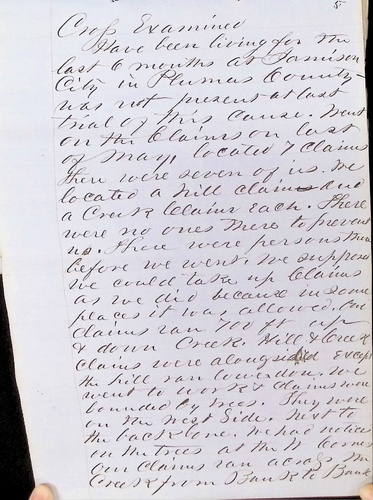 5
Cross Examined
Have been living for the
last 6 months at Jamison
City in Plumas County
was not present at last
trial of this cause. Went
on the Claims on last
of May, located 7 claims
there were seven of us. We
located a hill claim and
a Creek Claim each. There
were no ones there to prevent
us. There were persons there
before we went. We supposed
we could take up Claims
as we did because in some
places it was allowed. Our
claims ran 700 ft up
& down Creek. Hill & Creek
claims were alongside Except
the hill ran lower down. We
went to work & claims were
bounded by trees. They were
on the West Side. Next to
the back bone. We had notices
in the trees at the N Corner
Our Claims ran across the
Creek from Bank to Bank